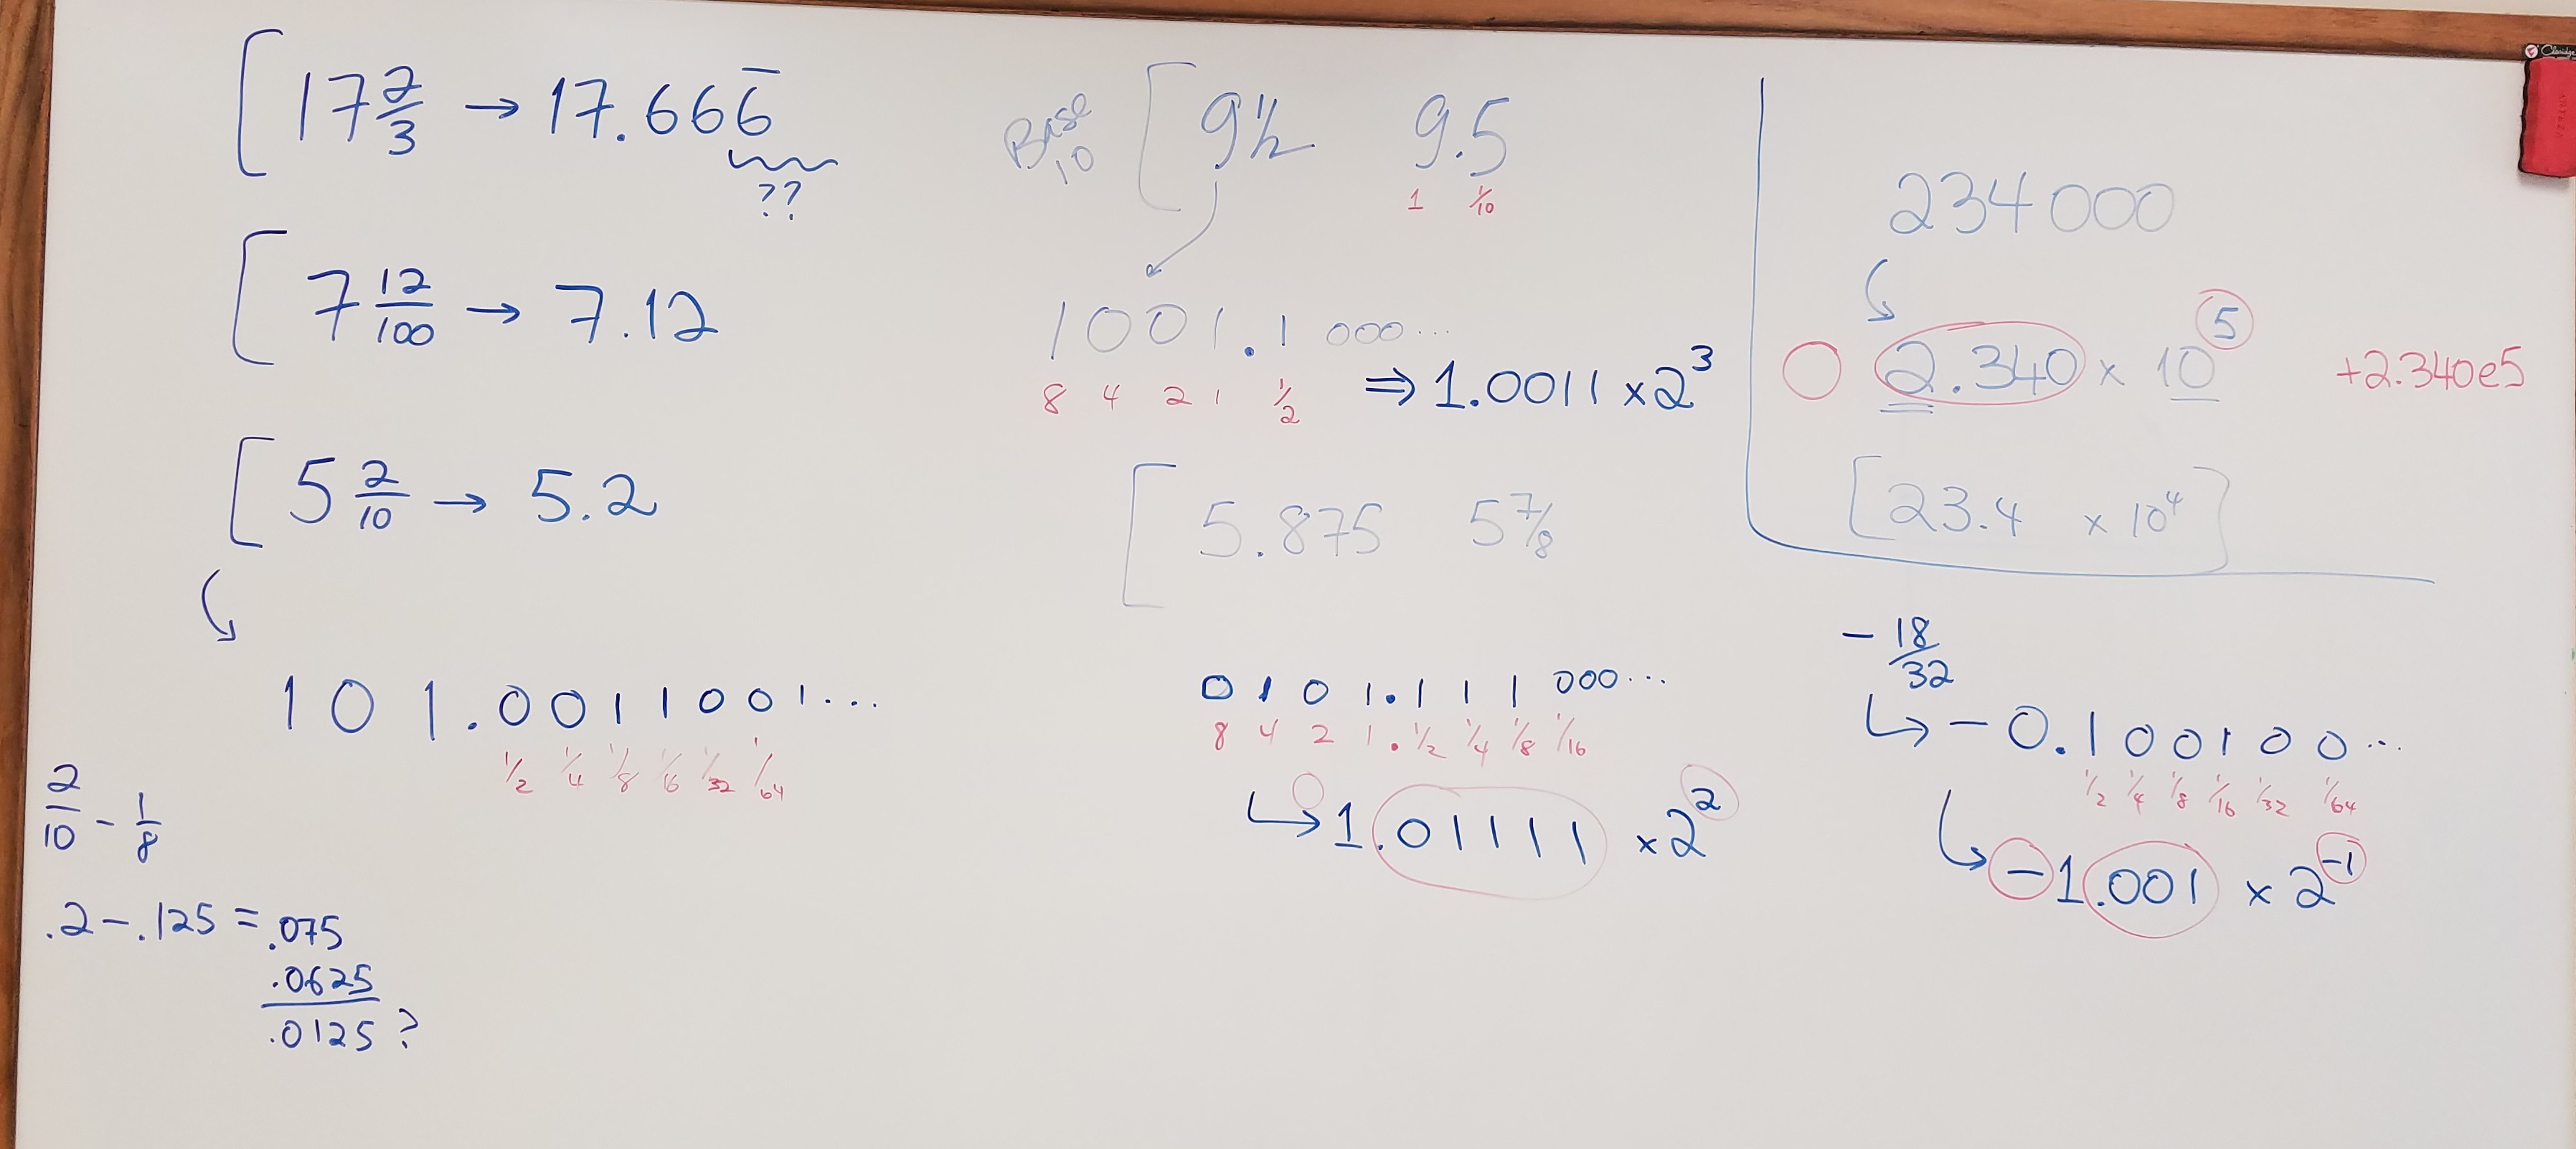 17 2/3 → 17.666̅
??
7 12/100 → 7.12
5 2/10 → 5.2
1 0 1 . 0 0 1 1 0 0 1 ...
1/2 1/4 1/8 1/16 1/32 1/64
2/10 - 1/8
.2 - .125 = .075
.0625
.0125 ?
Base 10
9 1/2 9.5
1 1/10
1001.1 000...
8 4 2 1 1/2
⇒ 1.0011 × 2³
5.875 5 7/8
0 1 0 1 . 1 1 1 000...
8 4 2 1 . 1/2 1/4 1/8 1/16
1.01111 × 2²
234000
2.340 × 10⁵
+2.340e5
23.4 × 10⁴
- 18/32
- 0.100100...
1/2 1/4 1/8 1/16 1/32 1/64
-1.001 × 2⁻¹